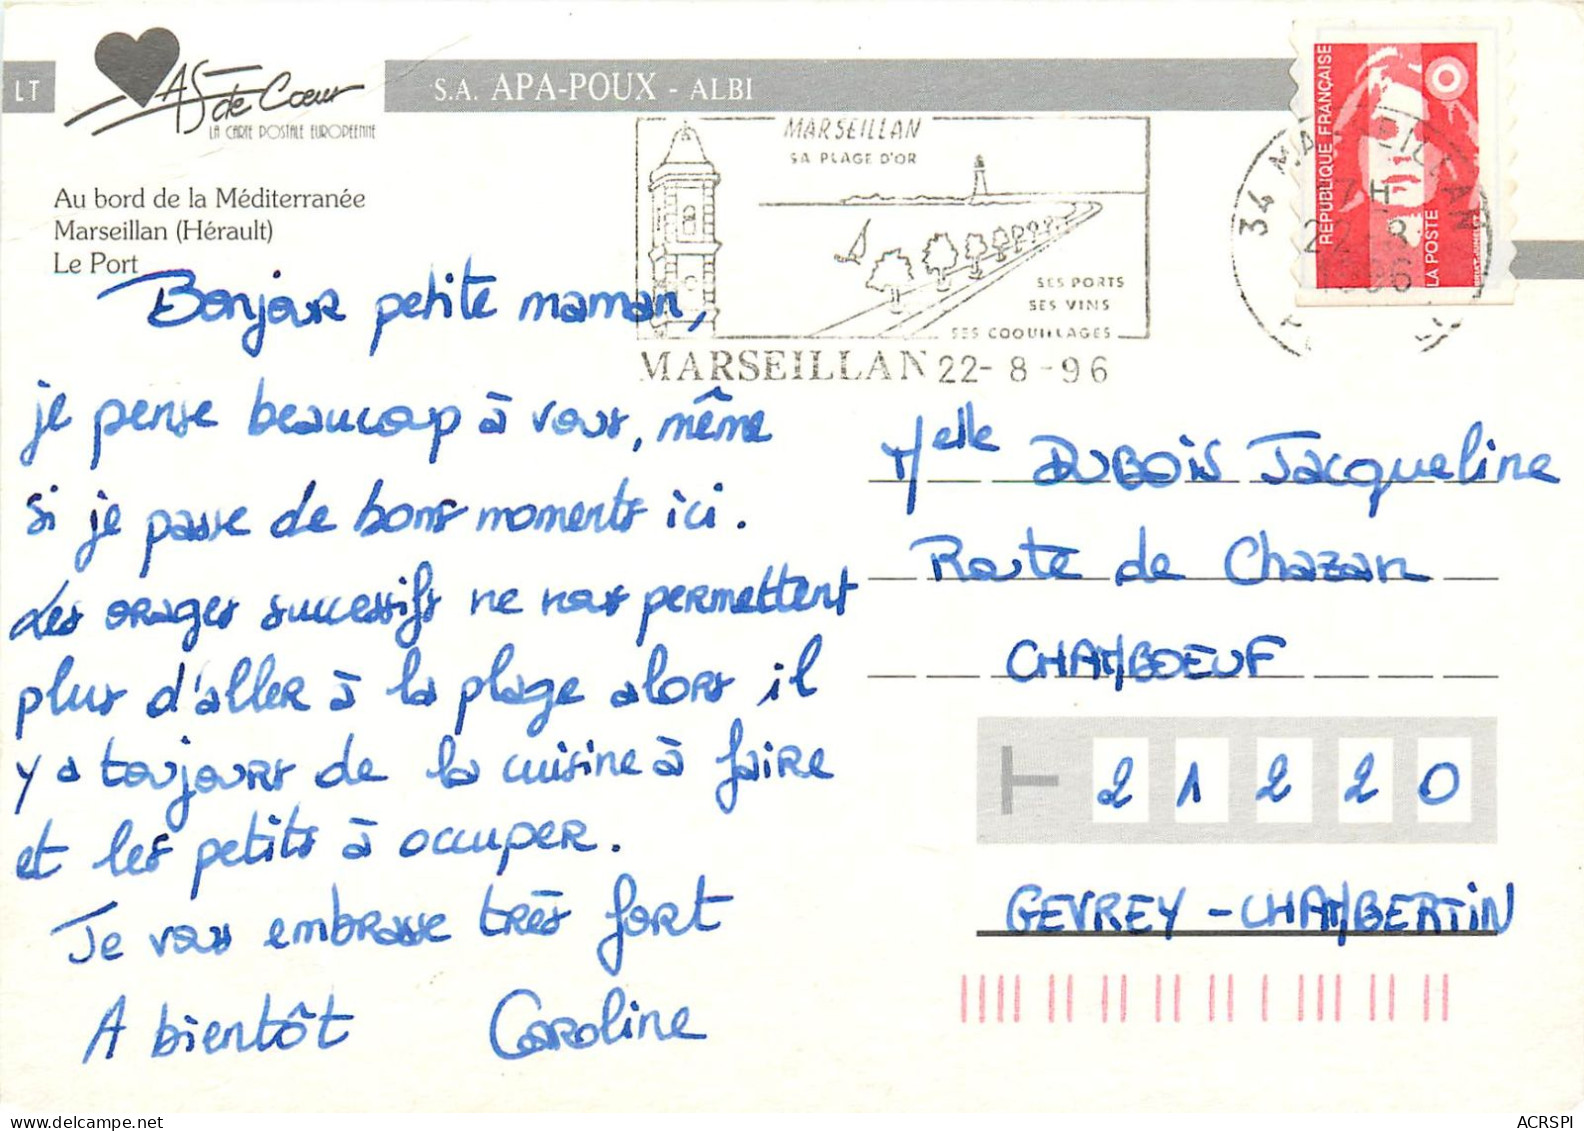 LT
AS de Cœur
LA CARTE POSTALE EUROPEENNE
S.A. APA-POUX - ALBI
Au bord de la Méditerranée
Marseillan (Hérault)
Le Port
MARSEILLAN
SA PLAGE D'OR
SES PORTS
SES VINS
SES COQUILLAGES
MARSEILLAN 22-8-96
34 MARSEILLAN
7H
22 8
1996
REPUBLIQUE FRANÇAISE
LA POSTE
Bonjour petite maman,
je pense beaucoup à vous, même
si je passe de bons moments ici.
Les orages successifs ne nous permettent
plus d'aller à la plage alors il
y a toujours de la cuisine à faire
et les petits à occuper.
Je vous embrasse très fort
A bientôt Caroline
Melle DUBOIS Jacqueline
Route de Chazan
CHAMBOEUF
21220
GEVREY-CHAMBERTIN
ACRSPI